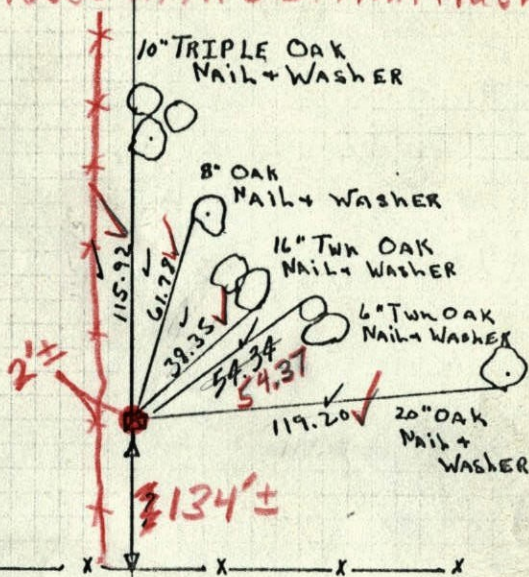 10" TRIPLE OAK
NAIL + WASHER
8" OAK
NAIL + WASHER
16" TWN OAK
NAIL + WASHER
6" TWN OAK
NAIL + WASHER
20" OAK
NAIL +
WASHER
115.92
61.78
38.35
54.34
54.37
119.20
2'±
134'±
x
x
x
x